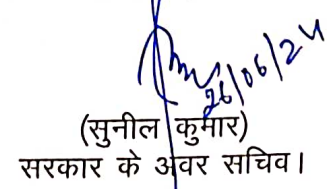 26/06/24
(सुनील कुमार)
सरकार के अवर सचिव।